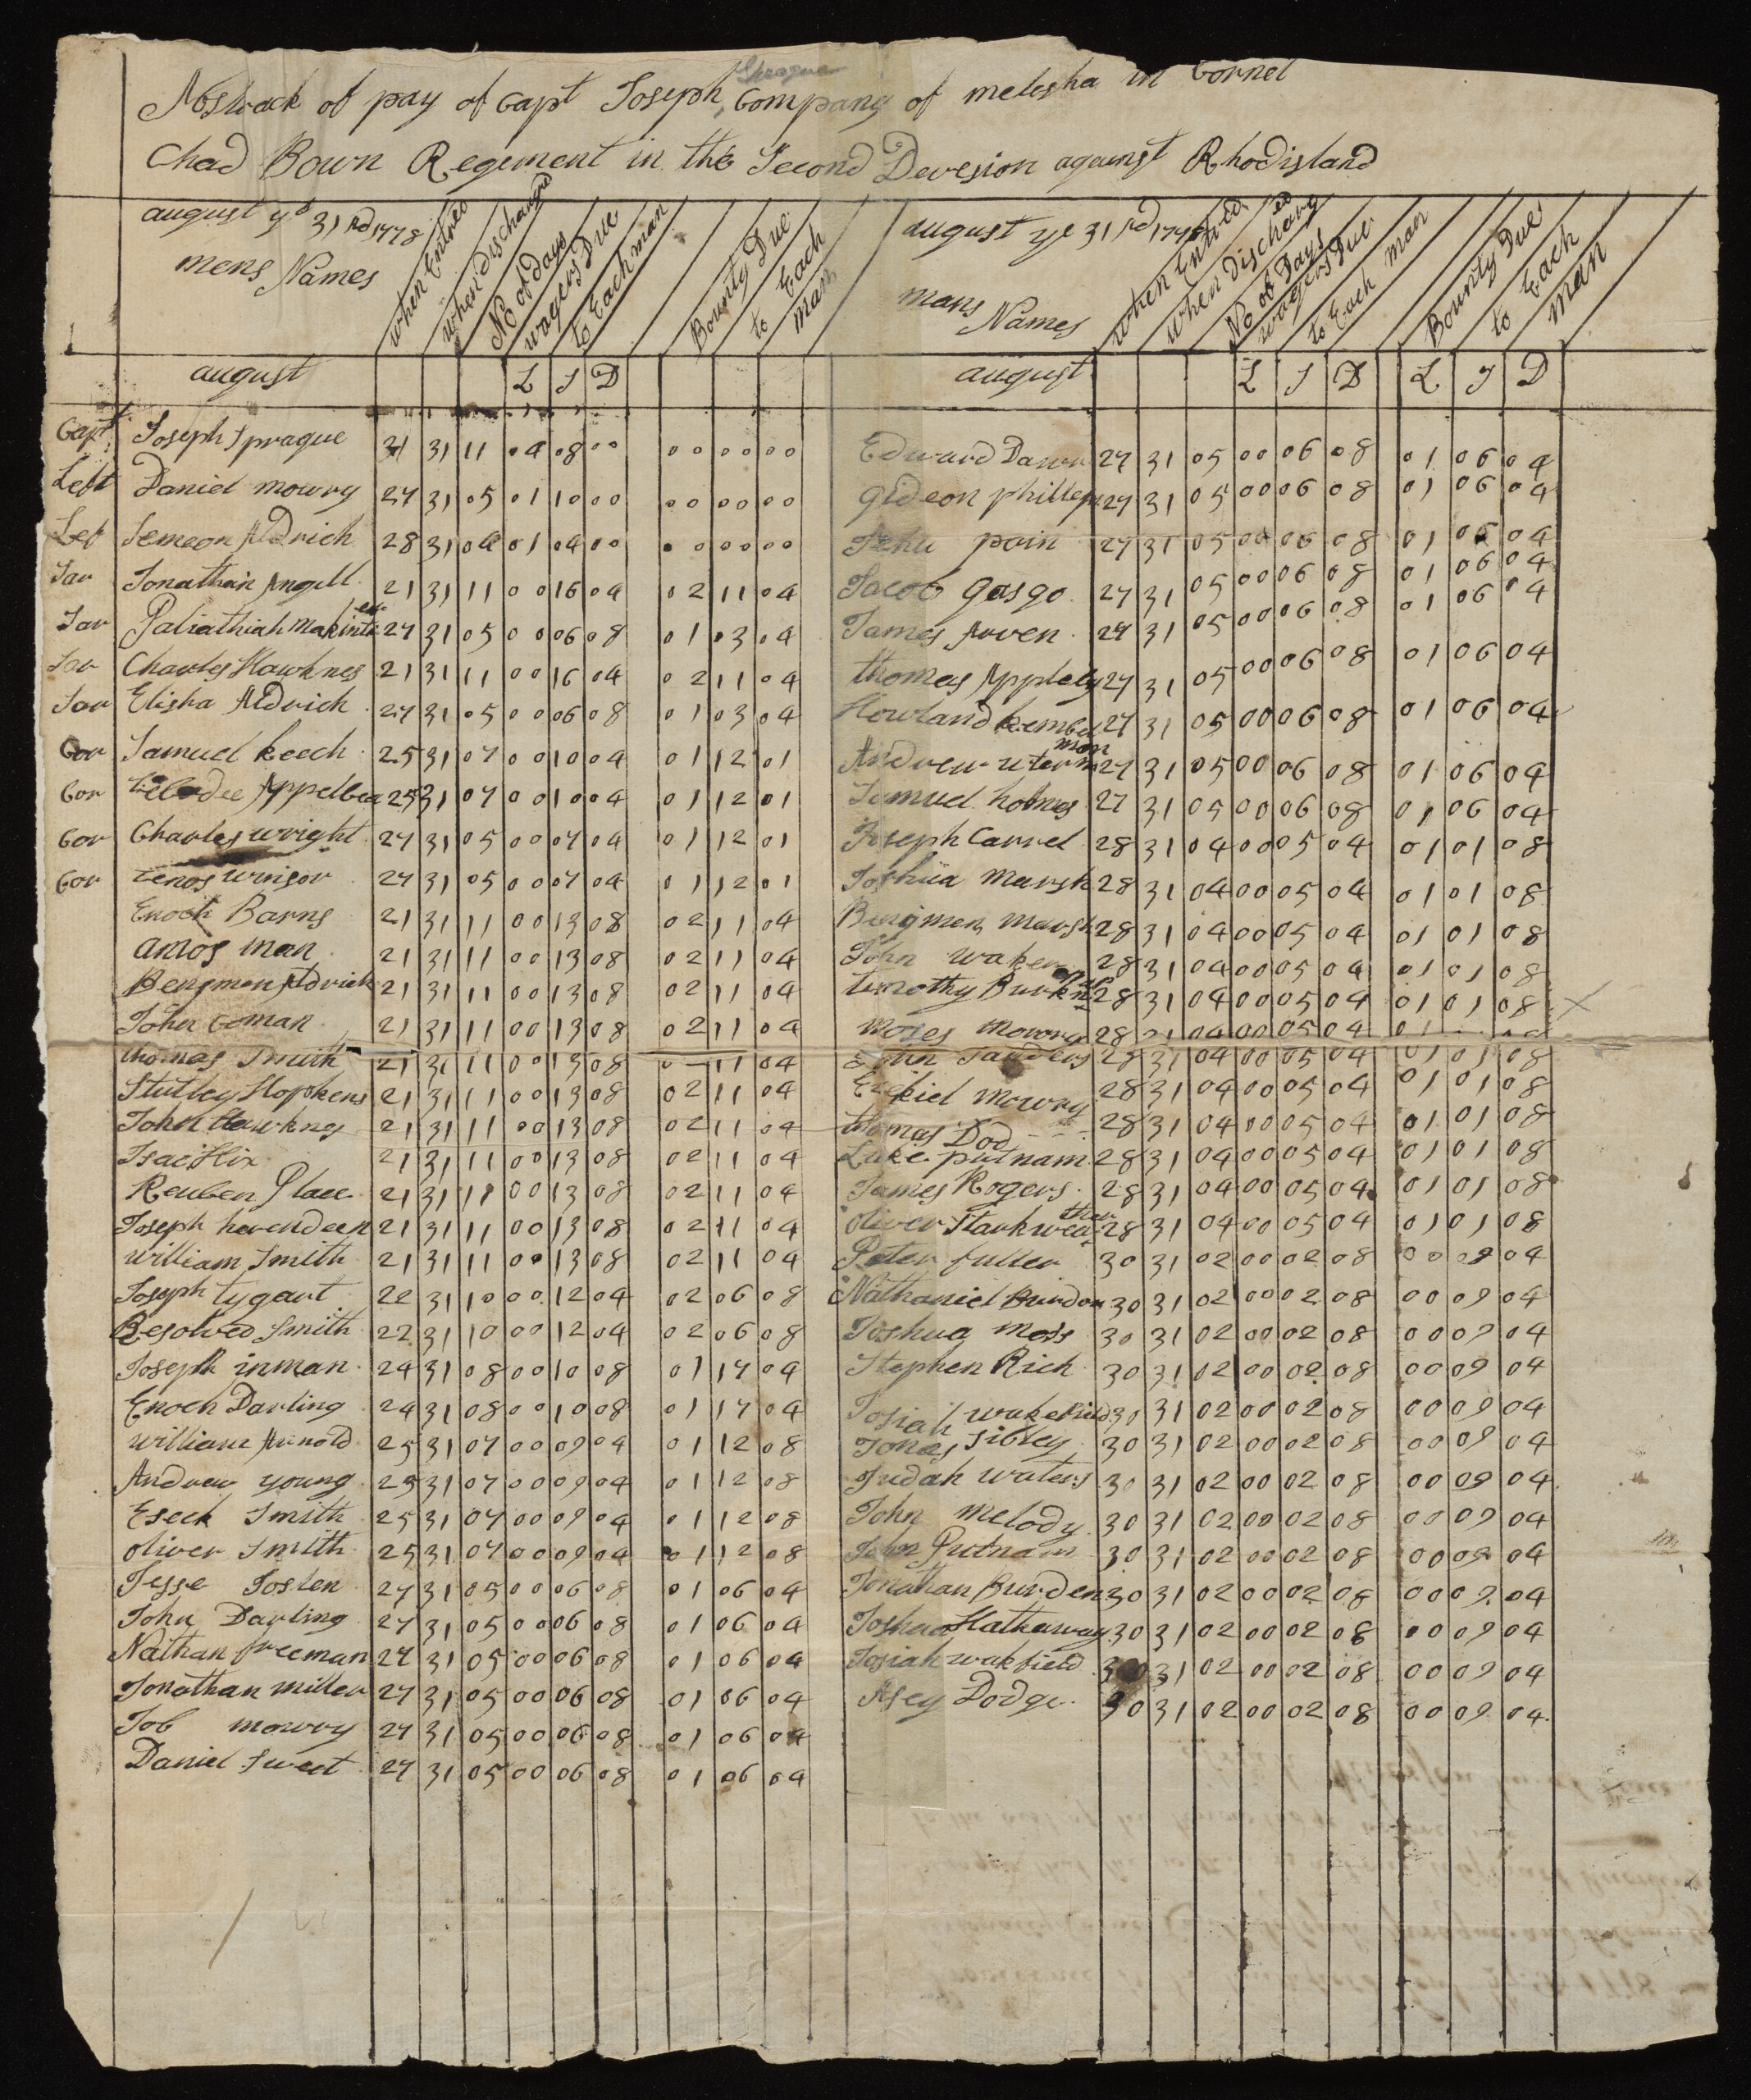 Abstrack of pay of Capt Joseph Sprague Company of melesha in Cornel
Chad Bown Regement in the Second Devesion against Rhodisland
august ye 31 rd 1778
mens Names
when Entred
when Discharged
No of days
wagers Due
to Each man
Bounty Due
to Each
man
august
L S D
Capt Joseph Sprague 21 31 11 04 08 00 00 00 00
Left Daniel mowry 27 31 05 01 10 00 00 00 00
Left Semeon Aldrich 28 31 04 01 04 00 00 00 00
Sar Jonathan Angell 21 31 11 00 16 04 02 11 04
Sar 27 31 05 00 06 08 01 03 04
Sar Charles Hawknes 21 31 11 00 16 04 02 11 04
Sar Elisha Aldrich 27 31 05 00 06 08 01 03 04
Cor Samuel keech 25 31 07 00 10 04 01 12 01
Cor Appelbea 25 31 07 00 10 04 01 12 01
Cor Charles wright 27 31 05 00 07 04 01 12 01
Cor zenos winsor 27 31 05 00 07 04 01 12 01
Enoch Barns 21 31 11 00 13 08 02 11 04
amos man 21 31 11 00 13 08 02 11 04
Bengmen Aldrich 21 31 11 00 13 08 02 11 04
John Coman 21 31 11 00 13 08 02 11 04
thomas Smith 21 31 11 00 13 08 11 04
Stutley Hopkens 21 31 11 00 13 08 02 11 04
John Hawkns 21 31 11 00 13 08 02 11 04
Isac Hix 21 31 11 00 13 08 02 11 04
Reuben Place 21 31 11 00 13 08 02 11 04
Joseph hevendeen 21 31 11 00 13 08 02 11 04
william Smith 21 31 11 00 13 08 02 11 04
Joseph tygart 22 31 10 00 12 04 02 06 08
Resolved Smith 22 31 10 00 12 04 02 06 08
Joseph inman 24 31 08 00 10 08 01 17 04
Enoch Darling 24 31 08 00 10 08 01 17 04
william Arnold 25 31 07 00 09 04 01 12 08
Andrew young 25 31 07 00 09 04 01 12 08
Eseck Smith 25 31 07 00 09 04 01 12 08
oliver Smith 25 31 07 00 09 04 01 12 08
Jesse Joslen 27 31 05 00 06 08 01 06 04
John Darling 27 31 05 00 06 08 01 06 04
Nathan freeman 27 31 05 00 06 08 01 06 04
Jonathan miller 27 31 05 00 06 08 01 06 04
Job mowry 27 31 05 00 06 08 01 06 04
Daniel Sweet 27 31 05 00 06 08 01 06 04
august ye 31 rd
mans Names
when Entred
when Discharged
No of Days
wagers Due
to Each man
Bounty Due
to Each
man
august
L S D L S D
Edward Dawn 27 31 05 00 06 08 01 06 04
gideon philleps 27 31 05 00 06 08 01 06 04
Jehu pain 27 31 05 00 06 08 01 06 04
Jacob gasgo 27 31 05 00 06 08 01 06 04
James Arven 27 31 05 00 06 08 01 06 04
thomas Appleby 27 31 05 00 06 08 01 06 04
Howland kembel 27 31 05 00 06 08 01 06 04
Andrew uterman 27 31 05 00 06 08 01 06 04
Samuel holmes 27 31 05 00 06 08 01 06 04
Joseph Carrel 28 31 04 00 05 04 01 01 08
Joshua marsh 28 31 04 00 05 04 01 01 08
Bengmen marsh 28 31 04 00 05 04 01 01 08
John waker 28 31 04 00 05 04 01 01 08
timothy 28 31 04 00 05 04 01 01 08
moses mowry 28 31 04 00 05 04
John Sanders 28 31 04 00 05 04 01 01 08
Ezekiel mowry 28 31 04 00 05 04 01 01 08
thomas Dod 28 31 04 00 05 04 01 01 08
Luke putnam 28 31 04 00 05 04 01 01 08
James Rogers 28 31 04 00 05 04 01 01 08
oliver Starkweather 28 31 04 00 05 04 01 01 08
Peter fuller 30 31 02 00 02 08 00 09 04
Nathaniel Burdon 30 31 02 00 02 08 00 09 04
Joshua moss 30 31 02 00 02 08 00 09 04
Stephen Rich 30 31 02 00 02 08 00 09 04
Josiah wakefield 30 31 02 00 02 08 00 09 04
Jonas Sibley 30 31 02 00 02 08 00 09 04
Judah waters 30 31 02 00 02 08 00 09 04
John melody 30 31 02 00 02 08 00 09 04
John Putnam 30 31 02 00 02 08 00 09 04
Jonathan Burden 30 31 02 00 02 08 00 09 04
Joshua Hathaway 30 31 02 00 02 08 00 09 04
Josiah wakfield 30 31 02 00 02 08 00 09 04
Asey Dodge 30 31 02 00 02 08 00 09 04